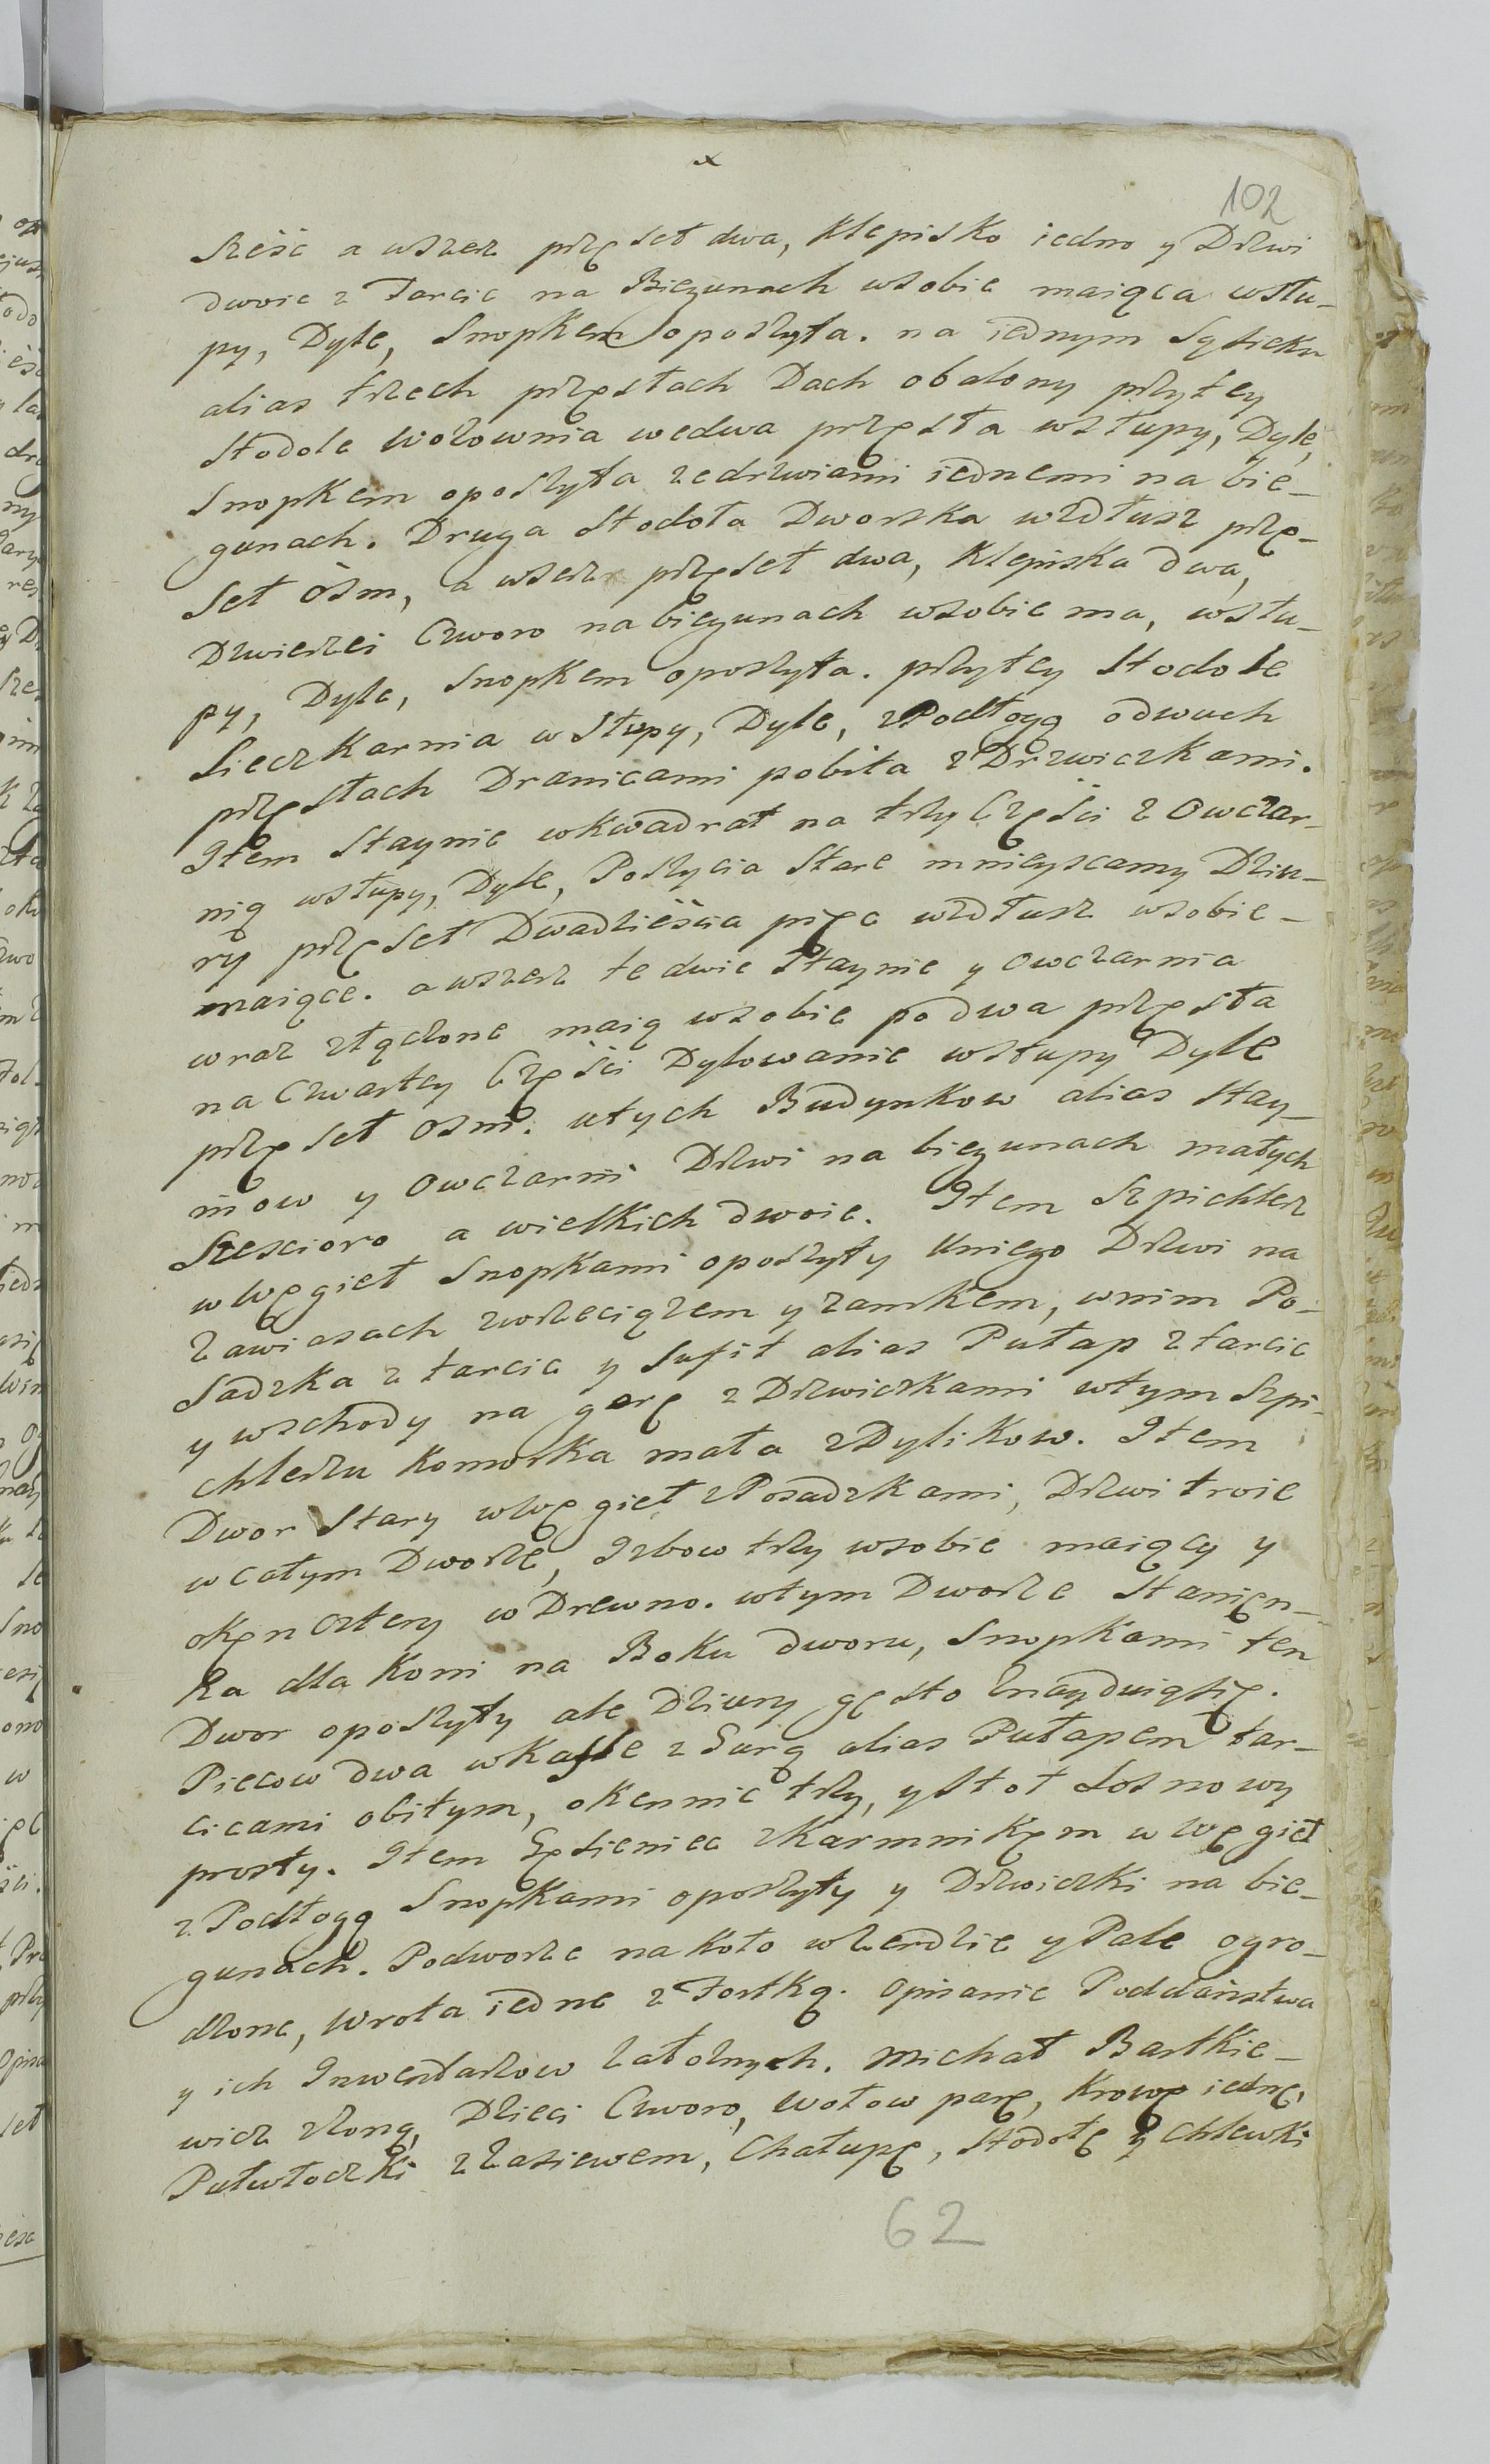 x
102
Sześć a wszerz przęset dwa, Klepisko iedno y Drzwi
dwoie z Tarcic na Biegunach wsobie maiąca wsłu-
py, Dyle, Snopkem oposzyta. na iednym Sąsieku
alias trzech przęsłach Dach obalony przytey
Stodole Wołownia wedwa przęsła wsłupy, Dyle,
Snopkem oposzyta zedrzwiami iednemi na bie-
gunach. Druga Stodoła Dworska wzdłusz przę-
set ośm, a wszerz przęset dwa, Klepiska dwa,
Dzwierzei Czworo nabiegunach wsobie ma, wsłu-
py, Dyle, Snopkem oposzyta. przytey Stodole
Sieczkarnia w Słupy, Dyle, z Podłogą odwuch
przęsłach Dranicami pobita z Drzwiczkami.
Item Staynie wkwadrat na trzy Części z Owczar-
nią wsłupy, Dyle, Poszycia Stare mnieyscamy Dziu-
ry przęset Dwadzieścia pięc wzdłusz wsobie -
maiące. a wszerz te dwie Staynie y Owczarnia
wraz złączone maią wsobie po dwa przęsła
na Czwartey Części Dylowanie wsłupy Dyle
przęset osm. utych Budynkow alias Stay-
niow y Owczarni Drzwi na biegunach małych
Szescioro a wielkich dwoie. Item Szpichlerz
w Węgieł Snopkami oposzyty Uniego Drzwi na
Zawiasach zwrzeciązem y zamkem, wnim Po-
Sadzka z tarcic y Sufit alias Pułap z tarcic
y wschody na gorę z Drzwiczkami wtym Szpi-
chlerzu Komorka mała z Dylikow. Item
Dwor Stary wWęgieł z Posadzkami, Drzwi troie
wcałym Dworze, Izbow trzy wsobie maiący y
okęn cztery w Drewno. wtym Dworze Stanięn-
ka dla Koni na Boku dworu, Snopkami ten
Dwor oposzyty ale Dziury gęsto Znayduiąsię.
Piecow dwa wKaffle z Gurą alias Pułapem tar-
cicami obitym, okennic trzy, y Stoł Sosnowy
prosty. Item Gęsieniec zKarmnikęm w Węgieł
z Podłogą Snopkami oposzyty y Drzwiczki na bie-
gunach. Podworze na koło wZerdzie y Pale ogro-
dzone, Wrota iedne z Fortką. Opisanie Poddaństwa
y ich Inwentarzow Załoznych. Michał Bartkie-
wicz zZoną, Dzieci Czworo, Wołow parę, Krowę iednę,
Pułwłoczki zZasiewem, Chałupę, Stodołę y Chlewki
62